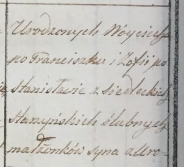 Urodzonych Woyciech
po Franciszku i Zofii po
Stanisławie z Siedleckich
Słamyńskich ślubnych
małżonków syna z Uro-